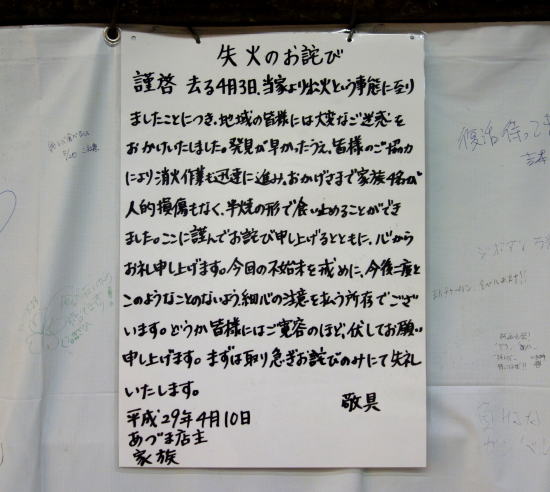 失火のお詫び
謹啓 去る4月3日、当家より出火という事態に至り
ましたことにつき、地域の皆様には大変なご迷惑を
おかけいたしました。発見が早かったうえ、皆様のご協力
により消火作業も迅速に進み、おかげさまで家族4名が
人的損傷もなく、半焼の形で食い止めることができ
ました。ここに謹んでお詫び申し上げるとともに、心から
お礼申し上げます。今回の不始末を戒めに、今後二度と
このようなことのないよう、細心の注意を払う所存でござ
います。どうか皆様にはご寛容のほど、伏してお願い
申し上げます。まずは取り急ぎお詫びのみにて失礼
いたします。
敬具
平成29年4月10日
あづま店主
家族
復活待って